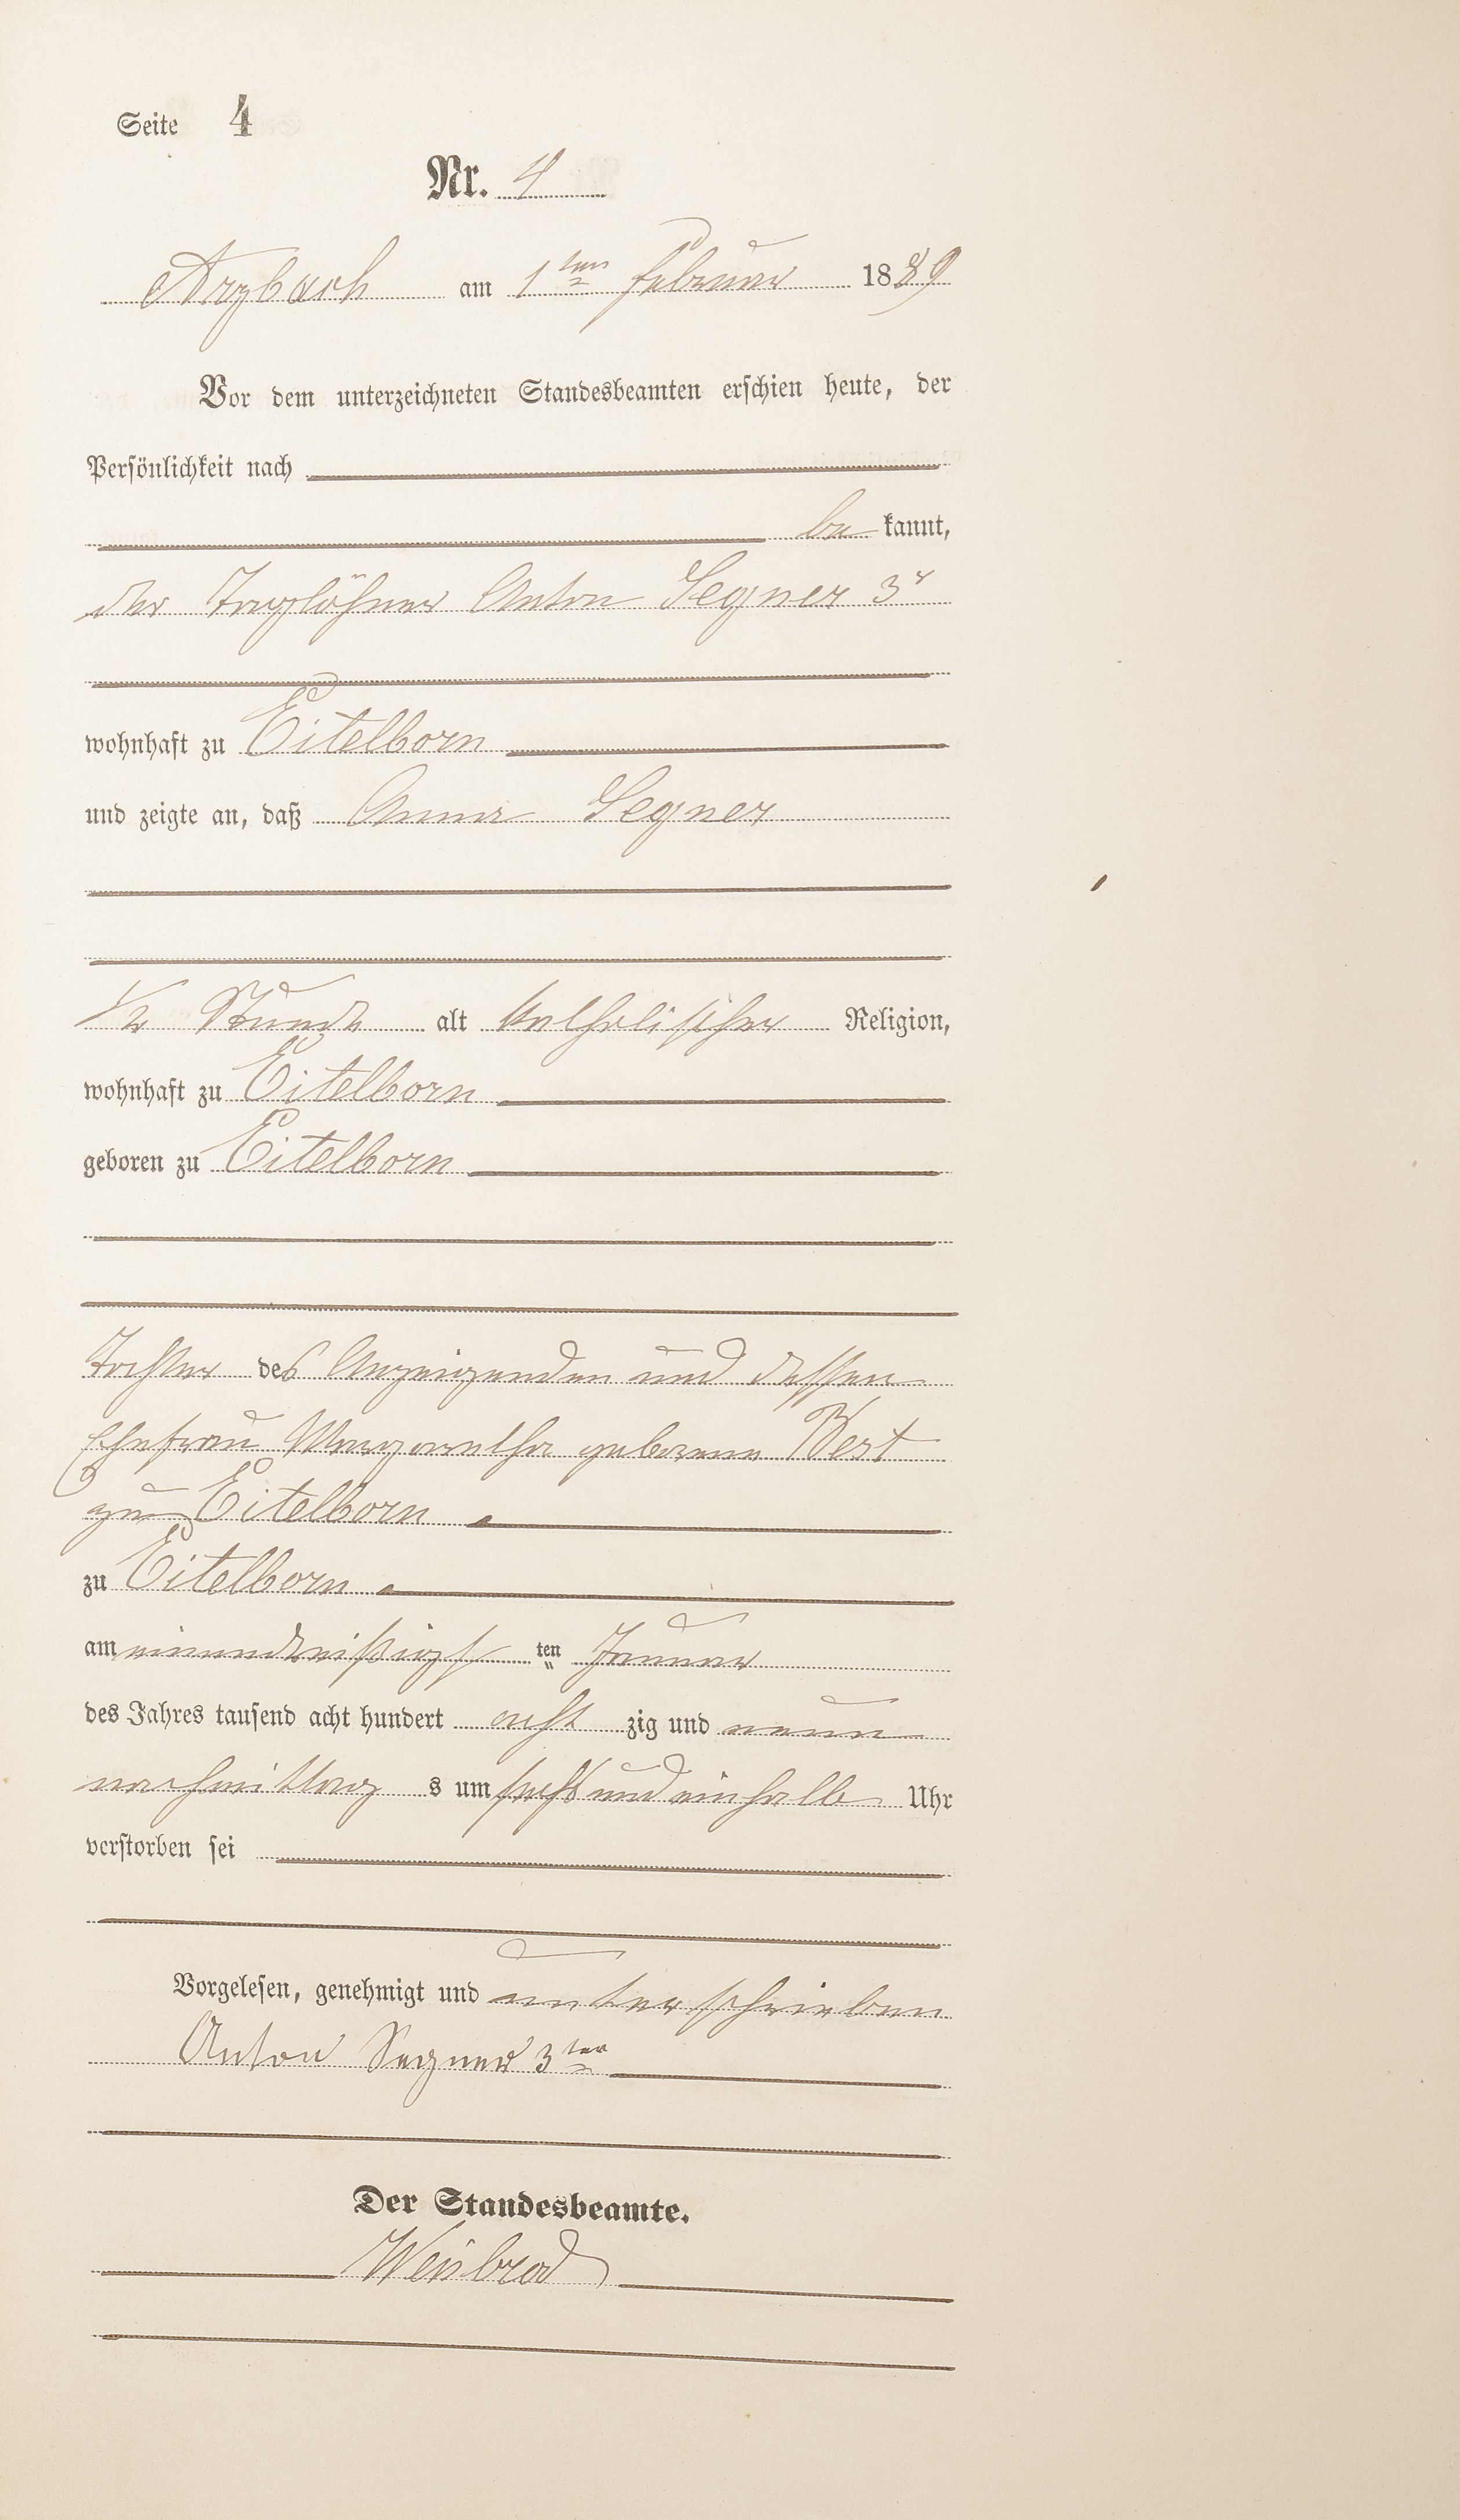 Seite 4
Nr. 4
Arzbach am 1ten Februar 1889
Vor dem unterzeichneten Standesbeamten erschien heute, der
Persönlichkeit nach
bekannt,
der Taglöhner Anton Segner 3r
wohnhaft zu Eitelborn
und zeigte an, daß Anna Segner
1/2 Stunde alt katholischer Religion,
wohnhaft zu Eitelborn
geboren zu Eitelborn
Tochter des Anzeigenden und dessen
Ehefrau Margaretha geborene Best
zu Eitelborn
zu Eitelborn
am einunddreißigsten Januar
des Jahres tausend acht hundert acht zig und neun
nachmittag s um sechs und einhalb Uhr
verstorben sei
Vorgelesen, genehmigt und unterschrieben
Anton Segner 3ter
Der Standesbeamte.
Weisbrod